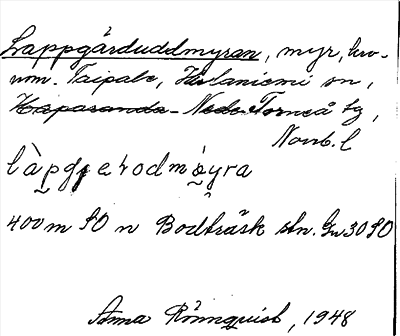 Lappgårduddmyran, myr, kro-
nom. Taipale, Hietaniemi sn,
Haparanda - Neder Torneå tg,
Norrb. l
400 m SO n Bodträsk stn. 30 SO
Anna Rönnquist, 1948